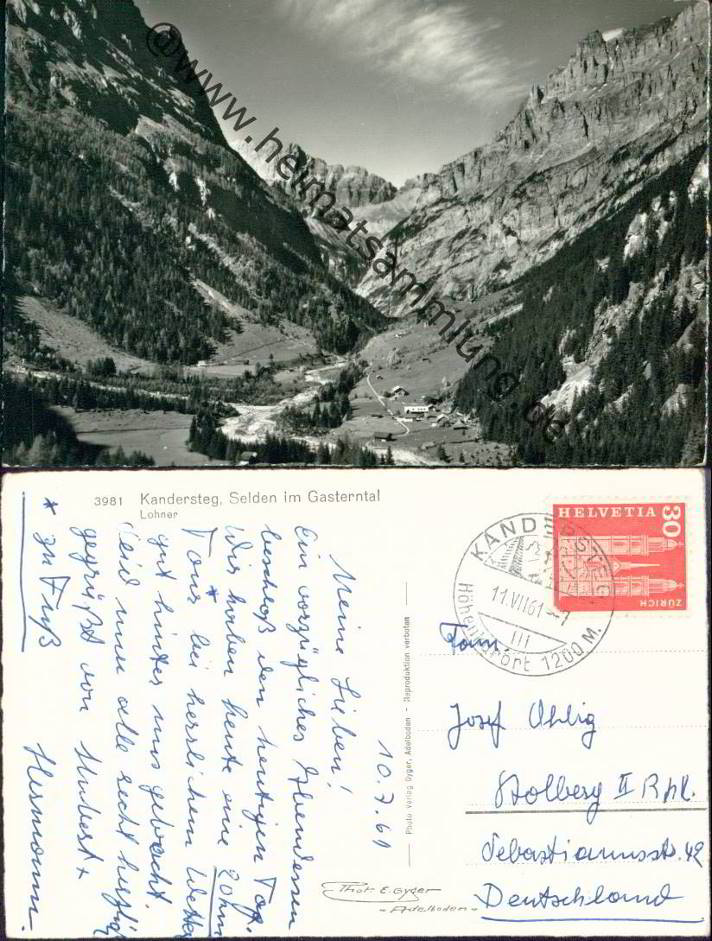 @www.heimatsammlung.de
3981 Kandersteg, Selden im Gasterntal
Lohner
HELVETIA 30
ZÜRICH
KANDERSTEG
11.VII61-7
Höhenkurort 1200 M.
Photo Verlag Gyger, Adelboden - Reproduktion verboten
10.7.61
Meine Lieben!
Ein vorzügliches Abendessen
beschloß den heutigen Tag.
Wir haben heute eine 20km
Tour* bei herrlichem Wetter
gut hinter uns gebracht.
Seid nun alle recht herzlich
gegrüßt von Hubert +
Hermann.
* zu Fuß
Fam.
Josef Ohlig
Stolberg II Rhl.
Sebastianusstr. 42
Deutschland
Phot. E. Gyger
- Adelboden -